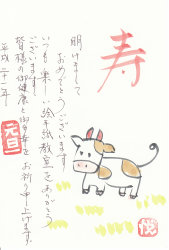 寿
明けまして
おめでとうございます
いつも楽しい絵手紙教室をありがとう
ございます。
皆様の御健康と御多幸をお祈り申し上げます。
平成二十一年
元旦
悦